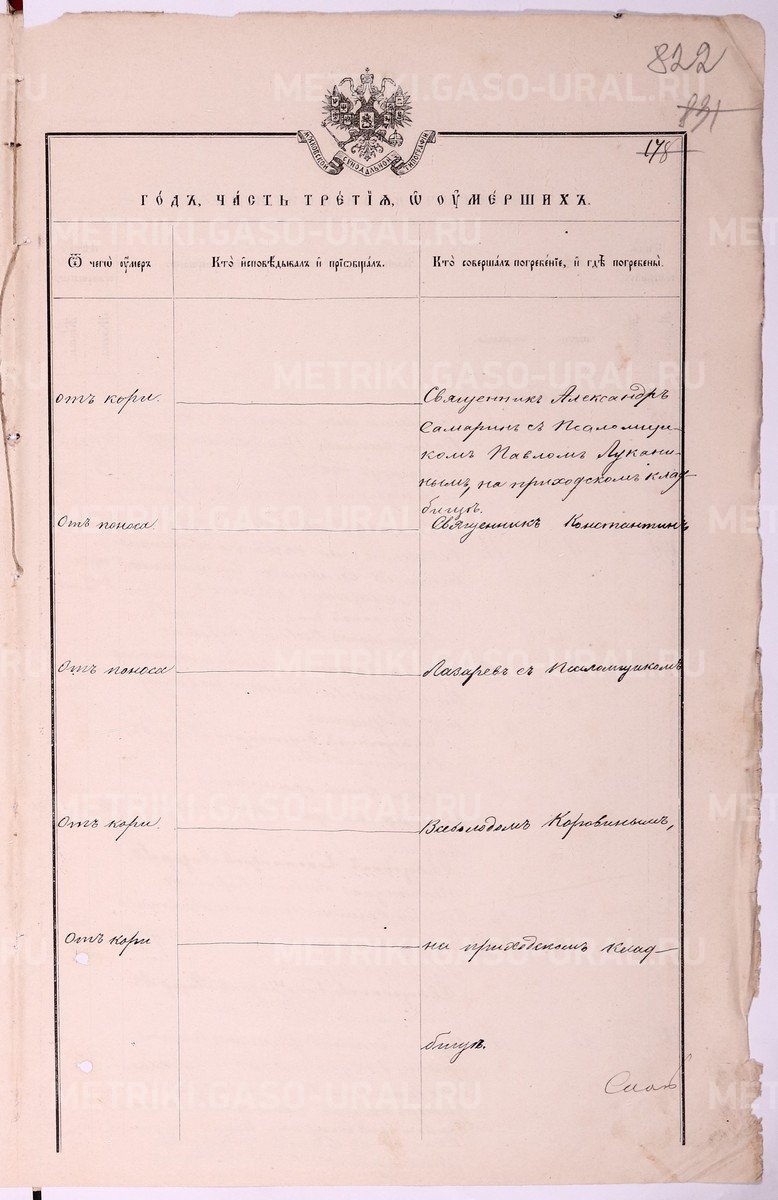 822
831
178
МОСКОВСКОЙ СѴНОДАЛЬНОЙ ТИПОГРАФІИ
ГО́ДЪ, ЧА́СТЬ ТРЕ́ТІѦ, Ѡ҆ ОУ҆МЕ́РШИХЪ.
Ѿ чегѡ̀ оу҆́меръ
Кто̀ и҆сповѣ́дывалъ и҆ прїѡбща́лъ.
Кто̀ соверша́лъ погребе́нїе, и҆ гдѣ̀ погребены̀.
отъ кори.
Священникъ Александръ
Самаринъ съ Псаломщи-
комъ Павломъ Лукани-
нымъ, на приходскомъ клад-
бищѣ.
Отъ поноса
Священникъ Константинъ
Отъ поноса
Лазаревъ съ Псаломщикомъ
Отъ кори.
Всеволодомъ Коровинымъ,
Отъ кори
на приходскомъ клад-
бищѣ.
METRIKI.GASO-URAL.RU